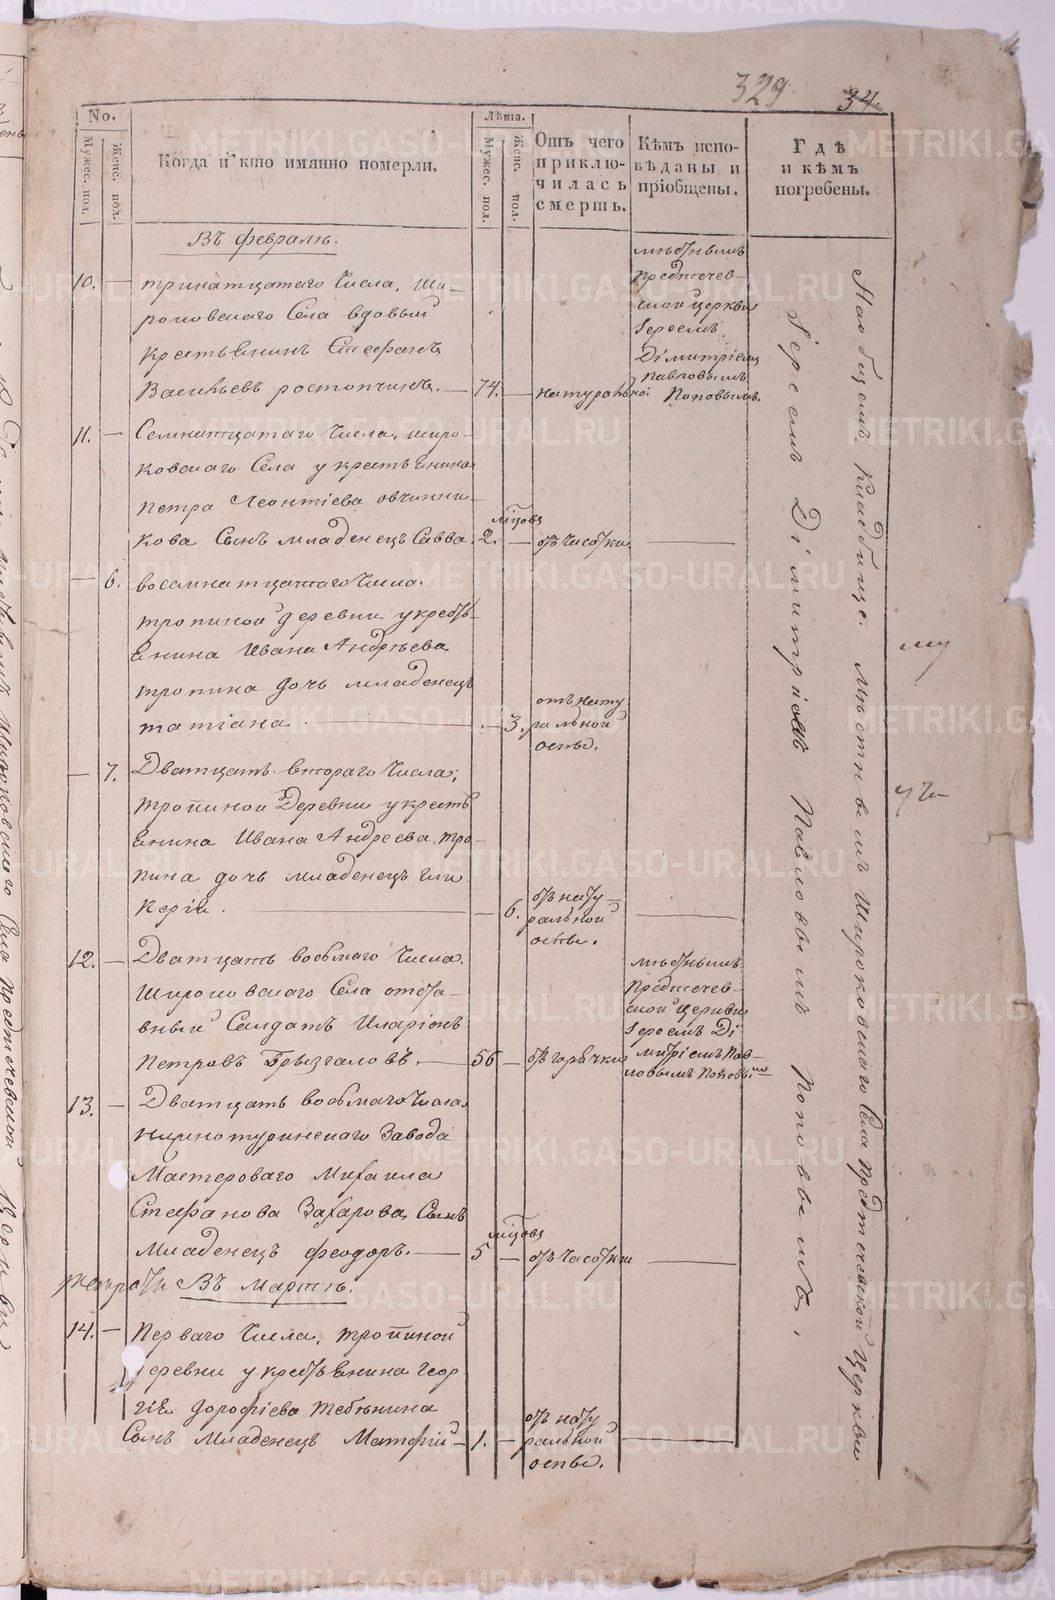 329
34.
No.
Мужес. пол.
Женс. пол.
Когда и кто имянно померли.
Лѣта.
Мужес. пол.
Женс. пол.
Отъ чего
приклю-
чилась
смерть.
Кѣмъ испо-
вѣданы и
пріобщены.
Гдѣ
и кѣмъ
погребены.
Въ февралѣ.
10. — тринатцатаго Числа, Ши-
роковскаго Села вдовый
крестьЕнинъ Стефанъ
Васильевъ ростопчинъ. — 74. — натуральной
мѣстнымъ
Предтечев-
ской церкви
Іереемъ
Димитріемъ
Павловымъ
Поповымъ.
11. — Семнатцатаго Числа, широ-
ковскаго Села у крестьЕнина
Петра Леонтіева овчинни-
кова Сынъ младенецъ Савва. 2. мѣсцовъ — отъ Часотки —
— 6. восемнатцатаго Числа.
тропиной деревни у крестЬ-
Енина Ивана Андрѣева
тропина дочь младенецъ
татіана. — 3. отъ нату
ральной
оспы.
— 7. Дватцать втораго Числа,
тропиной Деревни у крестЬ
Енина Ивана Андреева тро-
пина дочь младенецъ Гли
керія. — 6. отъ нату-
ральной
оспы. —
12. — Дватцать восьмаго Числа.
Широковскаго Села отста-
вный Салдатъ Иларіонъ
Петровъ Брызгаловъ. — 56 — отъ горячки
мѣстнымъ
Предтечев-
ской церкви
Іереемъ Ди
митріемъ Пав-
ловымъ Поповымъ
13. — Дватцать восьмаго Числа.
нижнотуринскаго Завода
Мастероваго Михаила
Стефанова Захарова, Сынъ
Младенецъ феодоръ. — 5 мѣсцовъ — отъ Часотки —
Въ Мартѣ.
14. — Перваго Числа, тропиной
деревни у крестЬЕнина Геор
гіЕ дорофіева тебѣнина
Сынъ Младенецъ Матфій — 1. — отъ нату
ральной
оспы. —
На общемъ Кладбище. Мѣстнымъ Широковскаго Села Предтечевской Церкви
Іереемъ Димитріемъ Павловымъ Поповымъ.
METRIKI.GASO-URAL.RU